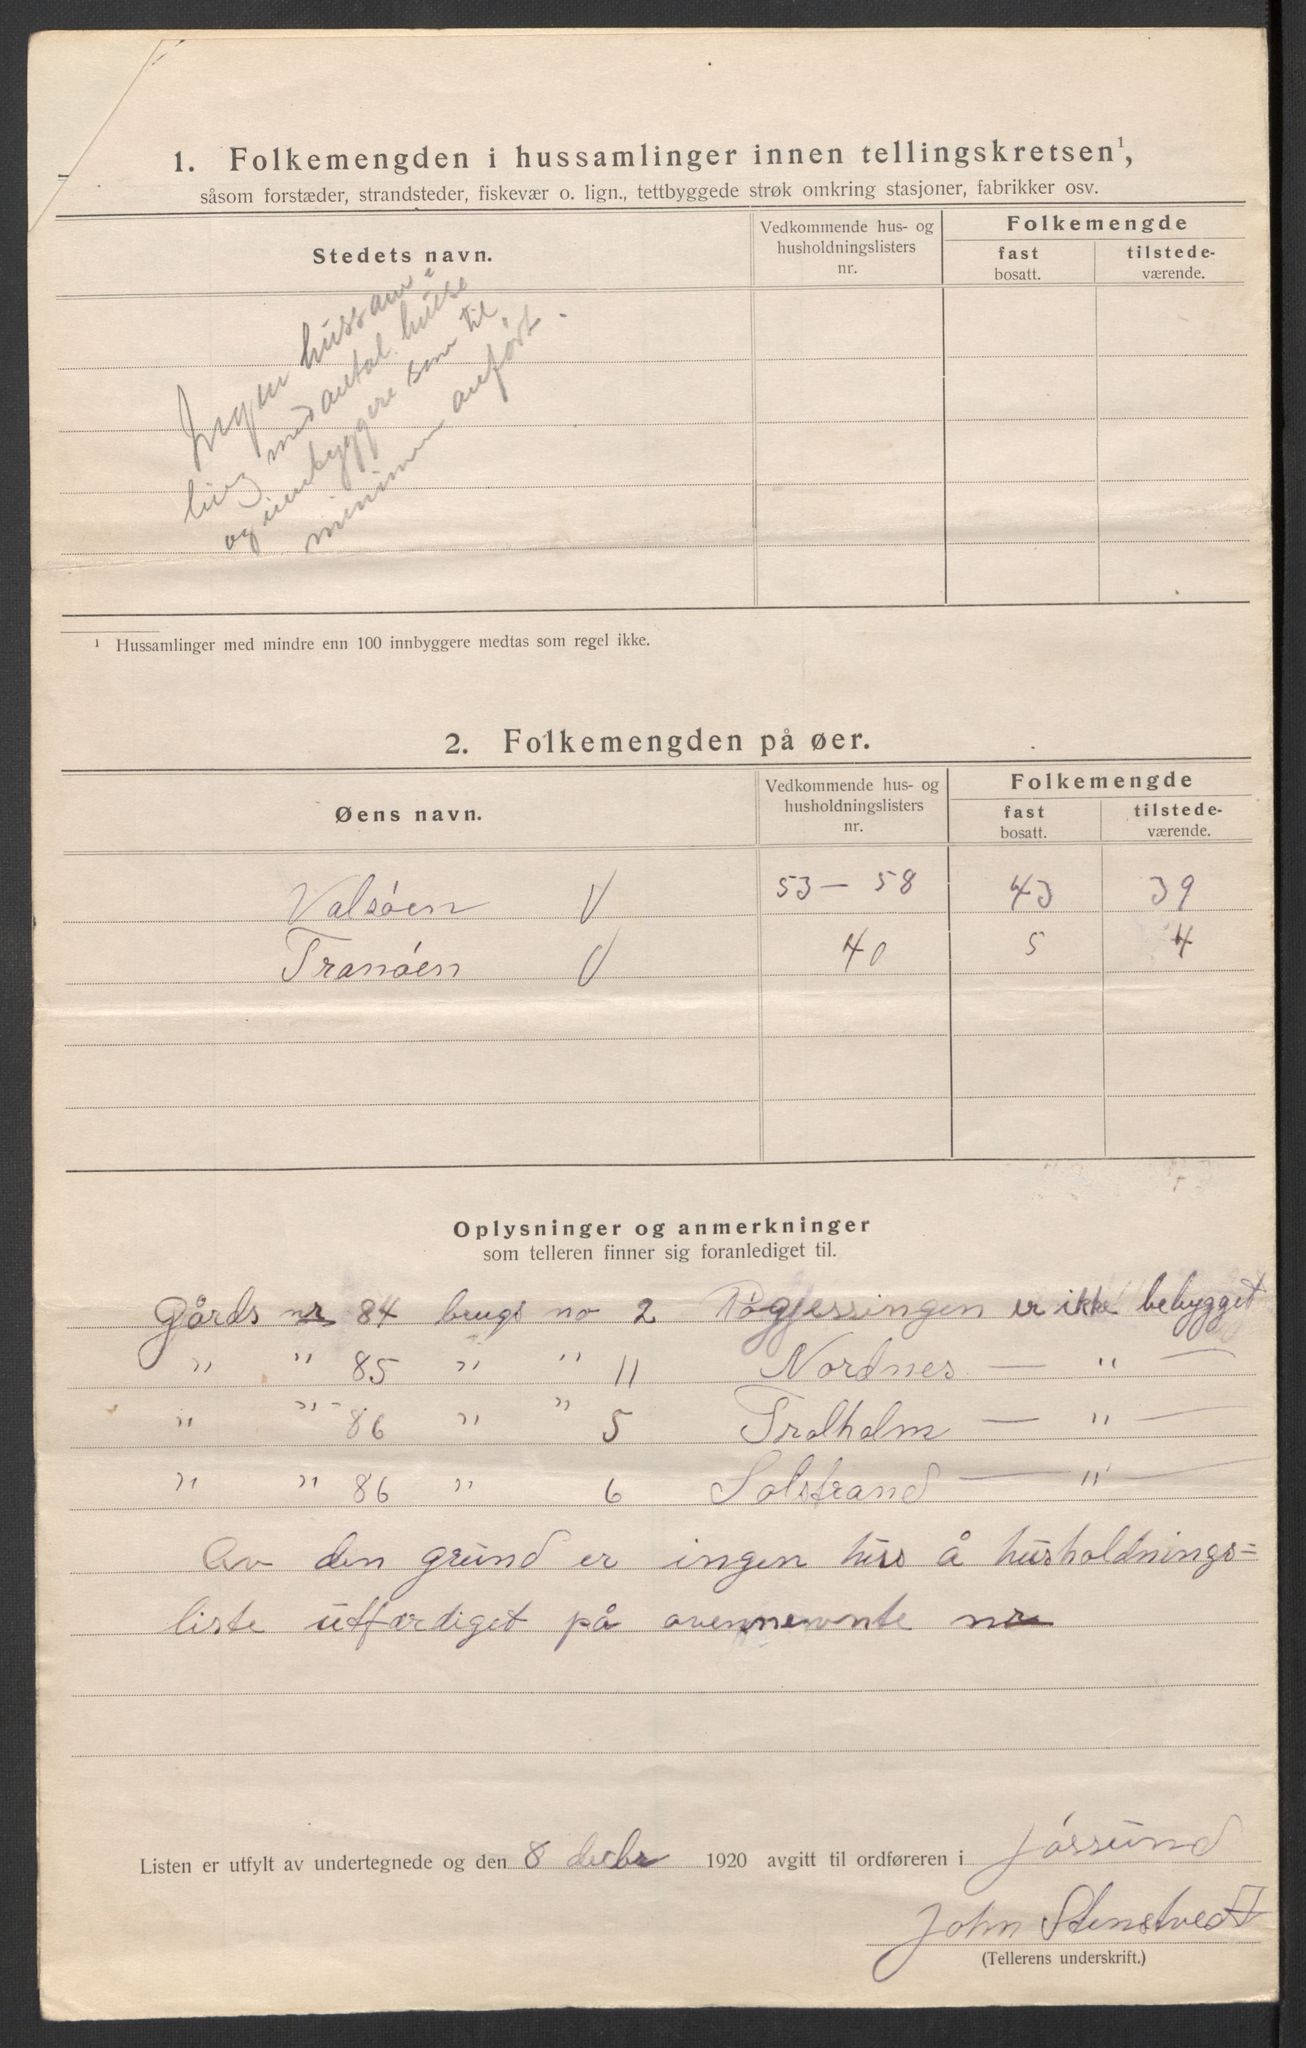 1. Folkemengden i hussamlinger innen tellingskretsen¹,
såsom forstæder, strandsteder, fiskevær o. lign., tettbyggede strøk omkring stasjoner, fabrikker osv.
Stedets navn.
Vedkommende hus- og
husholdningslisters
nr.
Folkemengde
fast
bosatt.
tilstede-
værende.
Ingen hussam-
ling med antal huse
og innbyggere som til
minimum anført.
¹ Hussamlinger med mindre enn 100 innbyggere medtas som regel ikke.
2. Folkemengden på øer.
Øens navn.
Vedkommende hus- og
husholdningslisters
nr.
Folkemengde
fast
bosatt.
tilstede-
værende.
Valsöen V 53 — 58 43 39
Tranöen V 40 5 4
Oplysninger og anmerkninger
som telleren finner sig foranlediget til.
Gårds nr 84 brugs no 2 er ikke bebygget
" " 85 " " 11 Nordnes — " —
" " 86 " " 5 Tralholm — " —
" " 86 " 6 Solstrand — " —
Av den grund er ingen hus å husholdnings=
liste utfærdiget på ovennevnte nr
Listen er utfylt av undertegnede og den 8 decbr 1920 avgitt til ordføreren i Jössund
John Stenstvedt
(Tellerens underskrift.)